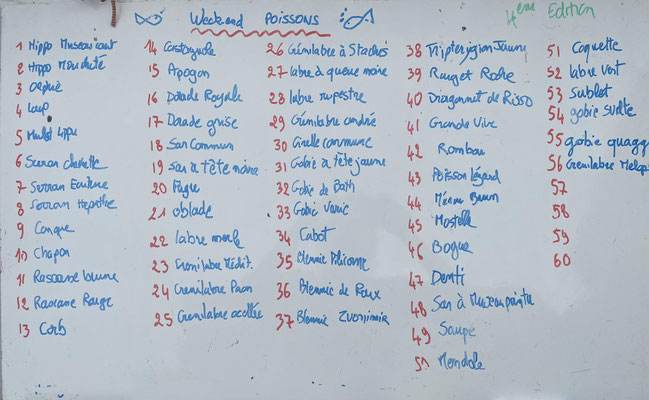 Weekend POISSONS
4ème Edition
1 Hippo Museau court
2 Hippo Moucheté
3 Orphie
4 Loup
5 Mulet lippu
6 Serran chevrette
7 Serran Ecriture
8 Serran Hépathe
9 Congre
10 Chapon
11 Rascasse brune
12 Rascasse Rouge
13 Corb
14 Castagnole
15 Apogon
16 Dorade Royale
17 Dorade grise
18 Sar Commun
19 sar à tête noire
20 Pagre
21 oblade
22 labre merle
23 Crenilabre Médit.
24 Crenilabre Paon
25 Crenilabre ocellée
26 Crénilabre à Taches
27 labre à queue noire
28 labre rupestre
29 Crénilabre cendré
30 Girelle commune
31 Gobie à tête jaune
32 Gobie de Bath
33 Gobie Varié
34 Cabot
35 Blennie Pilicorne
36 Blennie de Roux
37 Blennie Zvonimir
38 Tripterygion Jaune
39 Rouget Roche
40 Dragonnet de Risso
41 Grande Vive
42 Rombou
43 Poisson lézard
44 Mérou Brun
45 Mostelle
46 Bogue
47 Denti
48 Sar à Museau pointu
49 Saupe
50 Mendole
51 Coquette
52 labre vert
53 Sublet
54 gobie svelte
55 gobie quagga
56 Crenilabre Melop
57
58
59
60